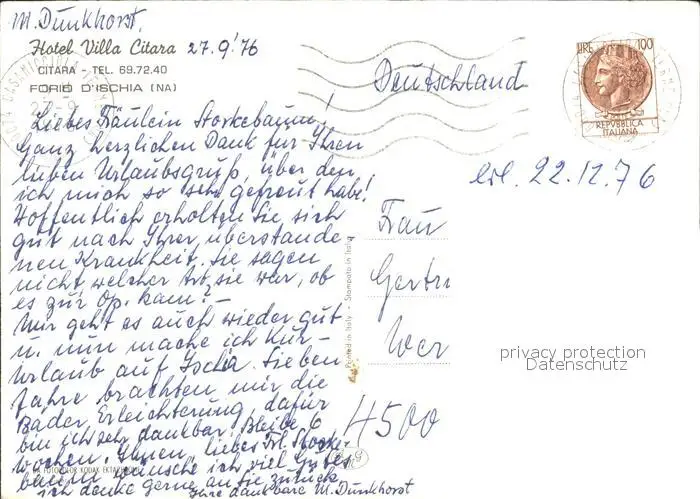 M. Dunkhorst,
Hotel Villa Citara 27.9.'76
CITARA - TEL. 69.72.40
FORIO D'ISCHIA (NA)
LIRE 100
REPVBBLICA
ITALIANA
Deutschland
Liebes Fräulein Storkebaum!
Ganz herzlichen Dank für Ihren
lieben Urlaubsgruß, über den
ich mich so sehr gefreut habe!
Hoffentlich erholten Sie sich
gut nach Ihrer überstande-
nen Krankheit. Sie sagen
nicht welcher Art sie war, ob
es zur Op. kam? –
Mir geht es auch wieder gut
u. nun mache ich Kur-
Urlaub auf Ischia. Sieben
Jahre brachten mir die
Bäder Erleichterung, dafür
bin ich sehr dankbar. Bleibe 6
Wochen. Ihnen, liebes Frl. Storke-
baum wünsche ich viel Gutes
ich denke gerne an Sie zurück
Ihre dankbare M. Dunkhorst
erl. 22.12.76
Frau
Gertru
Wer
4500
Printed in Italy - Stampato in Italia
FOTOCOLOR KODAK EKTACHROME
privacy protection
Datenschutz